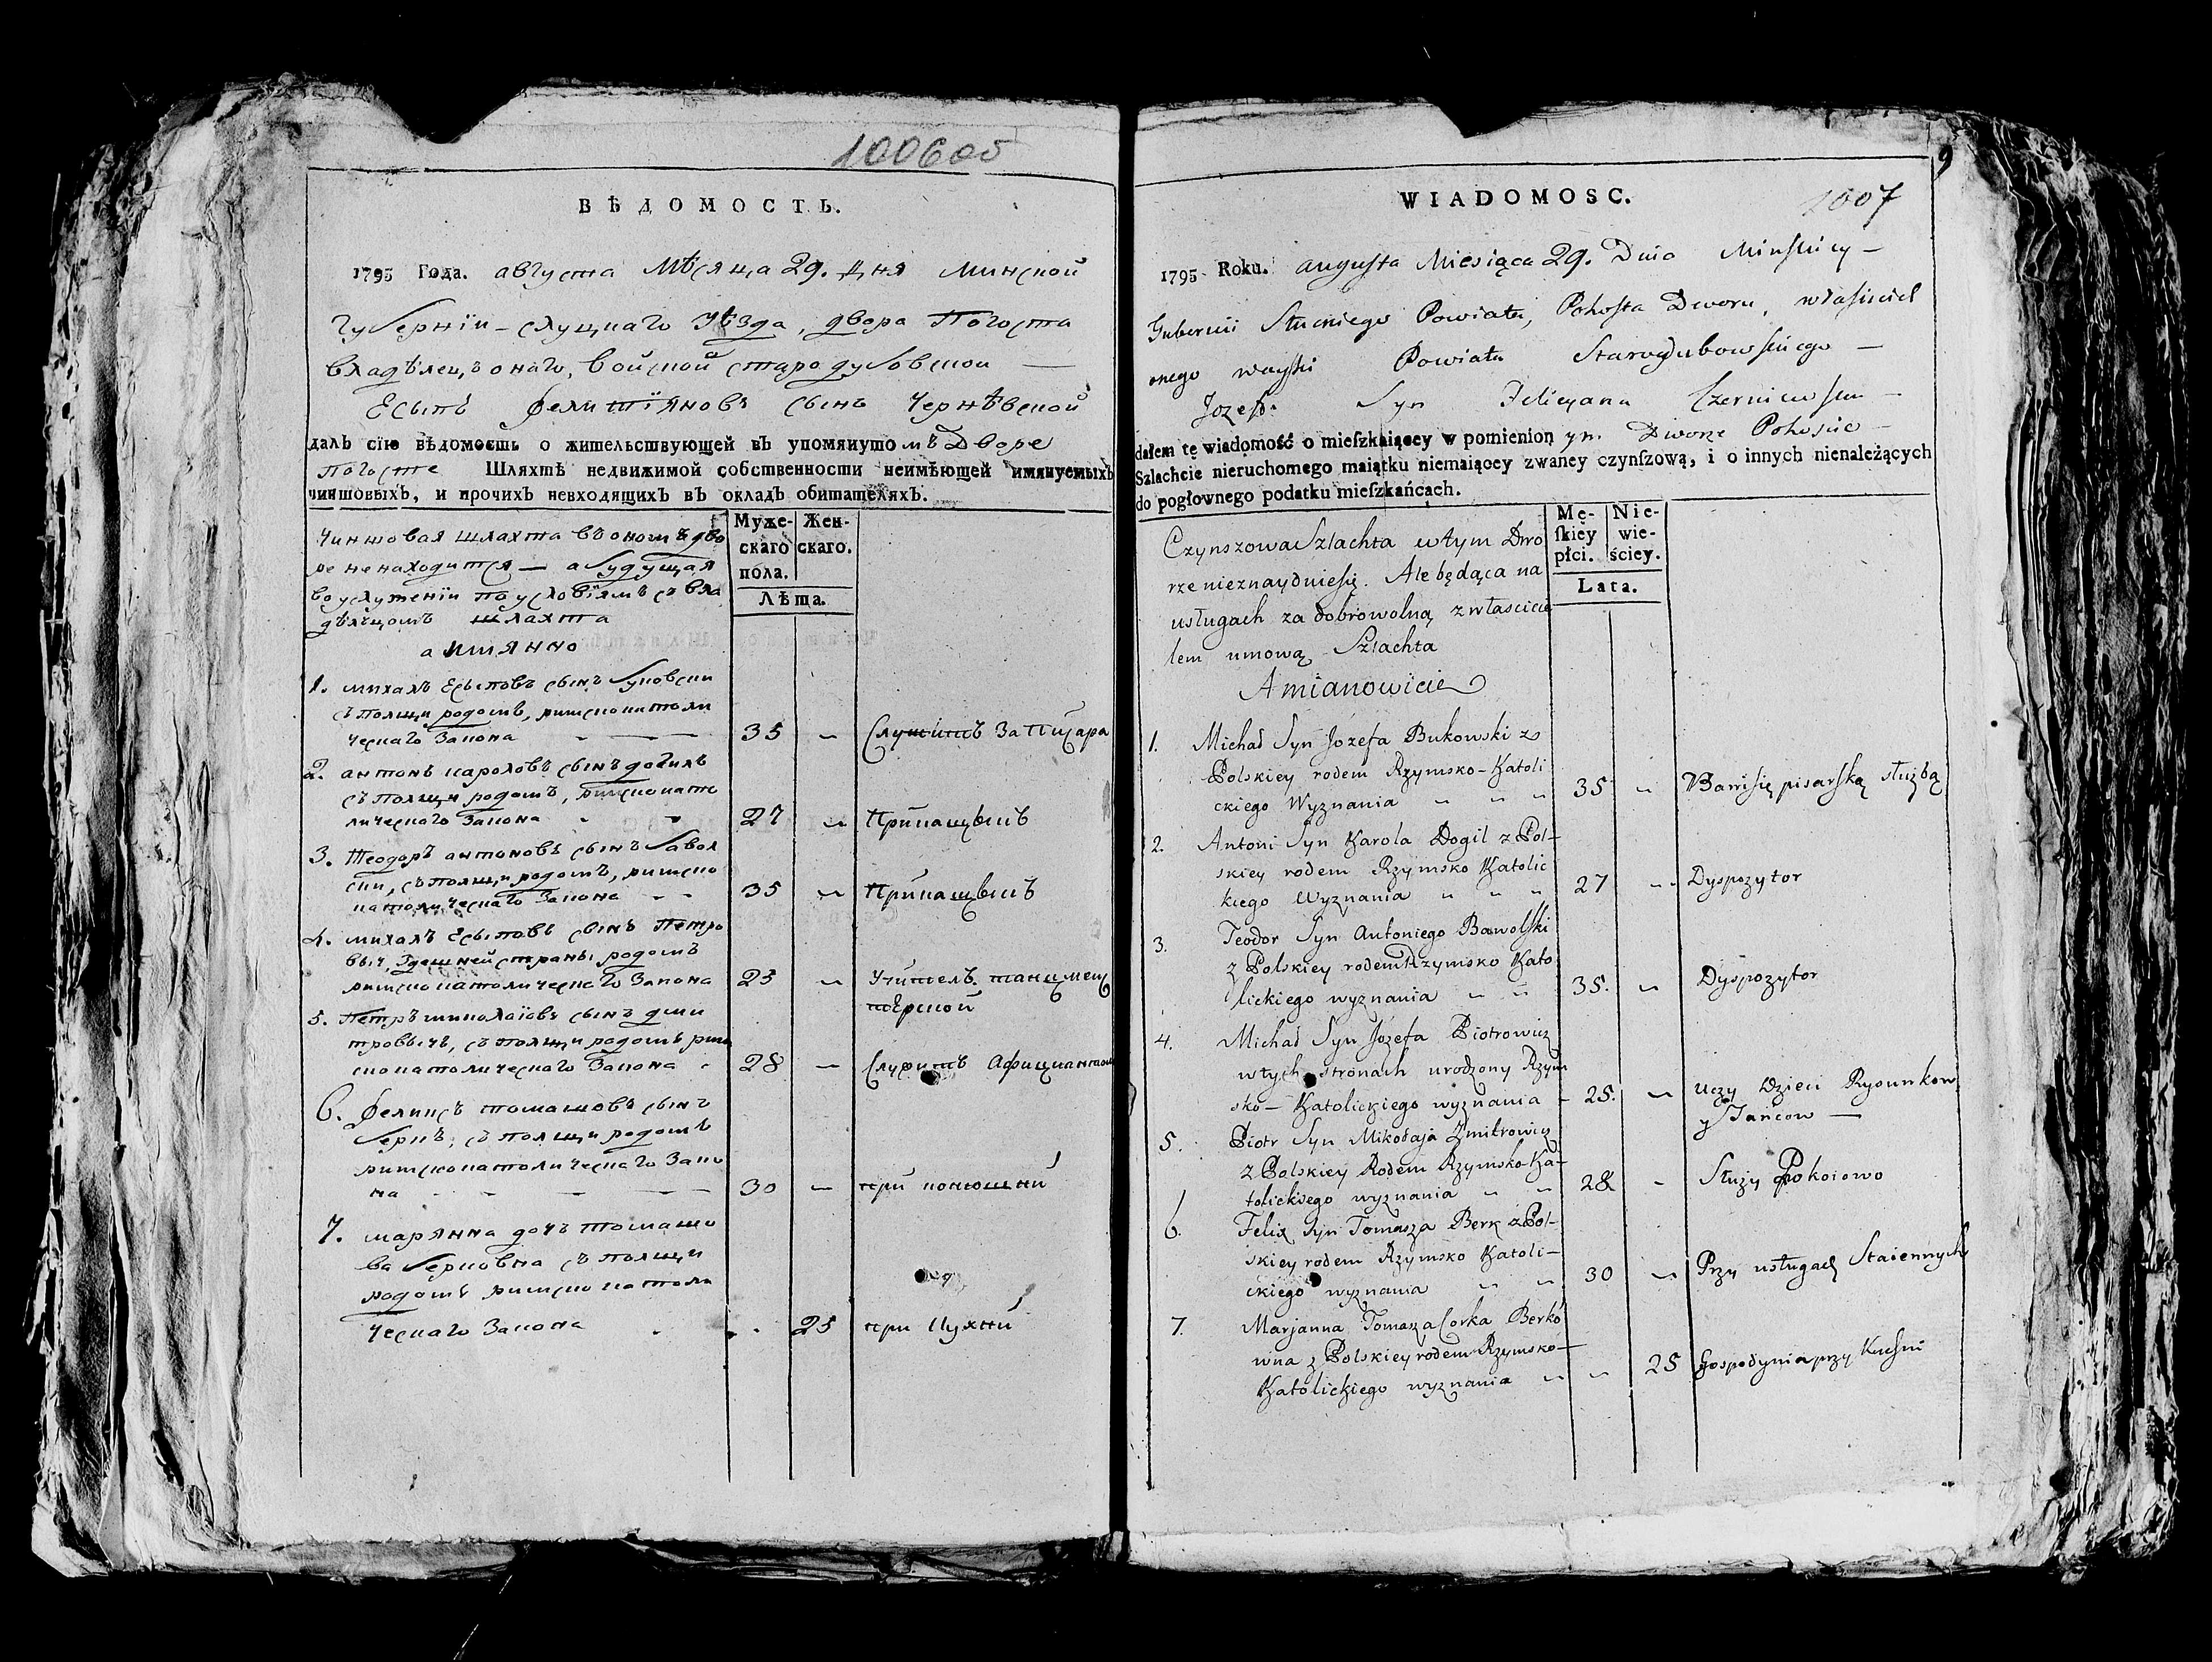 100600
ВѢДОМОСТЬ.
1795 Года. августа Мѣсяца 29. Дня Минской
Губернїи - слуцкаго Уѣзда, двора Погоста
Владѣлецъ онаго, Войской стародубовской —
Есыпъ Фелиціяновъ сынъ Чернѣвской
далъ сїю вѣдомость о жительствующей въ упомянутомъ Дворе
Погосте Шляхтѣ недвижимой собственности неимѣющей имянуемыхъ
чиншовыхъ, и прочихъ невходящихъ въ окладъ обитателяхъ.
Муже- Жен-
скаго скаго.
пола.
Лѣта.
Чиншовая шляхта въ ономъ дво
ре ненаходится — а будущая
во услуженіи по условіямъ съ вла
дѣлцомъ шляхта
а имянно
1. михалъ Есыповъ сынъ Буковски
съ полщи родомъ, римскокатоли
ческаго Закона 35 Служитъ За Писара
2. антонъ кароловъ сынъ догиль
съ Полщи родомъ, римскокато
лическаго Закона 27 Прикащыкъ
3. Теодоръ антоновъ сынъ Бавол
ски, съ полщи родомъ, римско
католическаго Закона 35 Прикащыкъ
4. михалъ Есыповъ сынъ Петро
вич, Здешней страны родомъ
римскокатолическаго Закона 25 Учитель танцмей
стерской
5. Петръ миколаіовъ сынъ дми
тровичъ, съ полщи родомъ рим
скокатолическаго Закона 28 Служитъ Афиціантом
6. Феликсъ томашовъ сынъ
Беркъ, съ полщи родомъ
римскокатолическаго Зако
на 30 при конюшни
7. марянна дочъ томашо
ва берковна съ полщи
родомъ римскокатоли
ческаго Закона 25 при Кухни
9
WIADOMOSC.
1007
1795 Roku. augusta Miesiąca 29. Dnia Minskiey -
Gubernii Słuckiego Powiatu, Pohosta Dworu, właściciel
onego woyski Powiatu Starodubowskiego —
Jozef Syn Felicyana Czerniewski
dałem tę wiadomość o mieſzkaiącey w pomienionym. Dworze Pohoście
Szlachcie nieruchomego maiątku niemaiącey zwaney czynſzową, i o innych nienależących
do pogłownego podatku mieſzkańcach.
Mę- Nie-
ſkiey wie-
płci. ściey.
Lata.
Czynszowa Szlachta w tym Dwo
rze nieznayduiesię. Ale będąca na
usługach za dobrowolną z właścicie
lem umową Szlachta
Amianowicie
1. Michał Syn Józefa Bukowski z
Polskiey rodem Rzymsko-Katoli
ckiego Wyznania 35 Bawi się pisarską służbą
2. Antoni Syn Karola Dogil z Pol-
skiey rodem Rzymsko Katolic
kiego Wyznania 27 Dyspozytor
3. Teodor Syn Antoniego Bawolski
z Polskiey rodem Rzymsko Kato
lickiego wyznania 35. Dyspozytor
4. Michał Syn Józefa Piotrowicz
w tych stronach urodzony Rzym
sko-Katolickiego wyznania - 25. Uczy Dzieci Rysunkow
y Tańcow —
5. Piotr Syn Mikołaja Zmitrowicz
z Polskiey Rodem Rzymsko-Ka-
tolickiego wyznania 28 Służy Pokoiowo
6. Felix Syn Tomasza Berk z Pol-
skiey rodem Rzymsko Katoli-
ckiego wyznania 30 Przy usługach Staiennych
7. Marjanna Tomasza Corka Berko
wna z Polskiey rodem Rzymsko-
Katolickiego wyznania 25 Gospodynia przy Kuchni